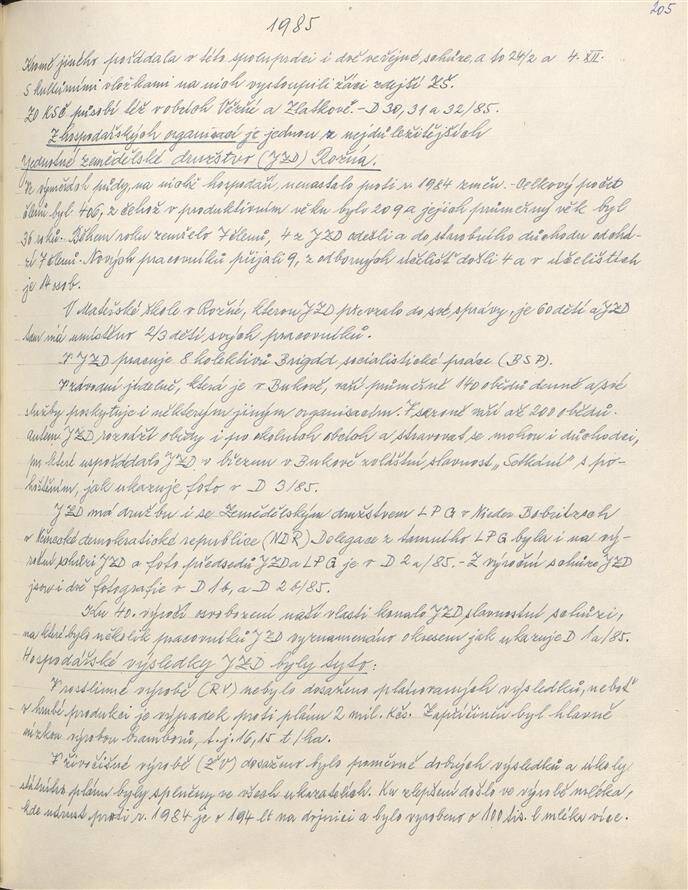 205
1985
Kromě jiného pořádala v této spolupráci i dvě veřejné schůze, a to 24/2 a 4. XII.
S kulturními vložkami na nich vystoupili žáci zdejší ZŠ.
ZO KSČ působí též v obcích Věžné a Zlatkově. - D 30, 31 a 32/85.
Z hospodářských organizací je jednou z nejdůležitějších
Jednotné zemědělské družstvo (JZD) Rožná.
Ve výměrách půdy, na nichž hospodaří, nenastalo proti r. 1984 změn. - Celkový počet
členů byl 406, z čehož v produktivním věku bylo 209 a jejich průměrný věk byl
36 roků. Během roku zemřelo 7 členů, 4 z JZD odešli a do starobního důchodu odchá-
zí 7 členů. Nových pracovníků přijali 9, z odborných učilišť došli 4 a v učilištích
je 14 osob.
V Mateřské škole v Rožné, kterou JZD převzalo do své správy, je 60 dětí a JZD
tam má umístěno 2/3 dětí svých pracovníků.
V JZD pracuje 8 kolektivů Brigád socialistické práce (BSP).
Závodní jídelně, která je v Bukově, vaří průměrně 140 obědů denně a své
služby poskytuje i některým jiným organisacím. V sezoně vaří až 200 obědů.
Autem JZD, rozváží obědy i po okolních obcích a stravovat se mohou i důchodci,
pro které uspořádalo JZD v březnu v Bukově zvláštní slavnost "Setkání" s po-
hoštěním, jak ukazuje foto v D 3/85.
JZD má družbu i se Zemědělským družstvem LPG v Nieder Bobritzsch
v Německé demokratické republice (NDR) Delegace z tamního LPG byla i na vý-
roční schůzi JZD a foto předsedů JZD a LPG je v D 2a/85. - Z výroční schůze JZD
jsou i dvě fotografie v D 1b, a D 2b/85.
Ku 40. výročí osvobození naší vlasti konalo JZD slavnostní schůzi,
na které bylo několik pracovníků JZD vyznamenáno okresem jak ukazuje D 1a/85.
Hospodářské výsledky JZD byly tyto:
V rostlinné výrobě (RV) nebylo dosaženo plánovaných výsledků, neboť
v hrubé produkci je výpadek proti plánu 2 mil. Kčs. Zapříčiněn byl hlavně
nízkou výrobou bramborů, t. j. 16,15 t/ha.
V živočišné výrobě (ŽV) dosaženo bylo poměrně dobrých výsledků a úkoly
státního plánu byly splněny ve všech ukazatelích. Ku zlepšení došlo ve výrobě mléka,
kde nárust proti r. 1984 je v 194 lt na dojnici a bylo vyrobeno o 100 tis. l mléka více.